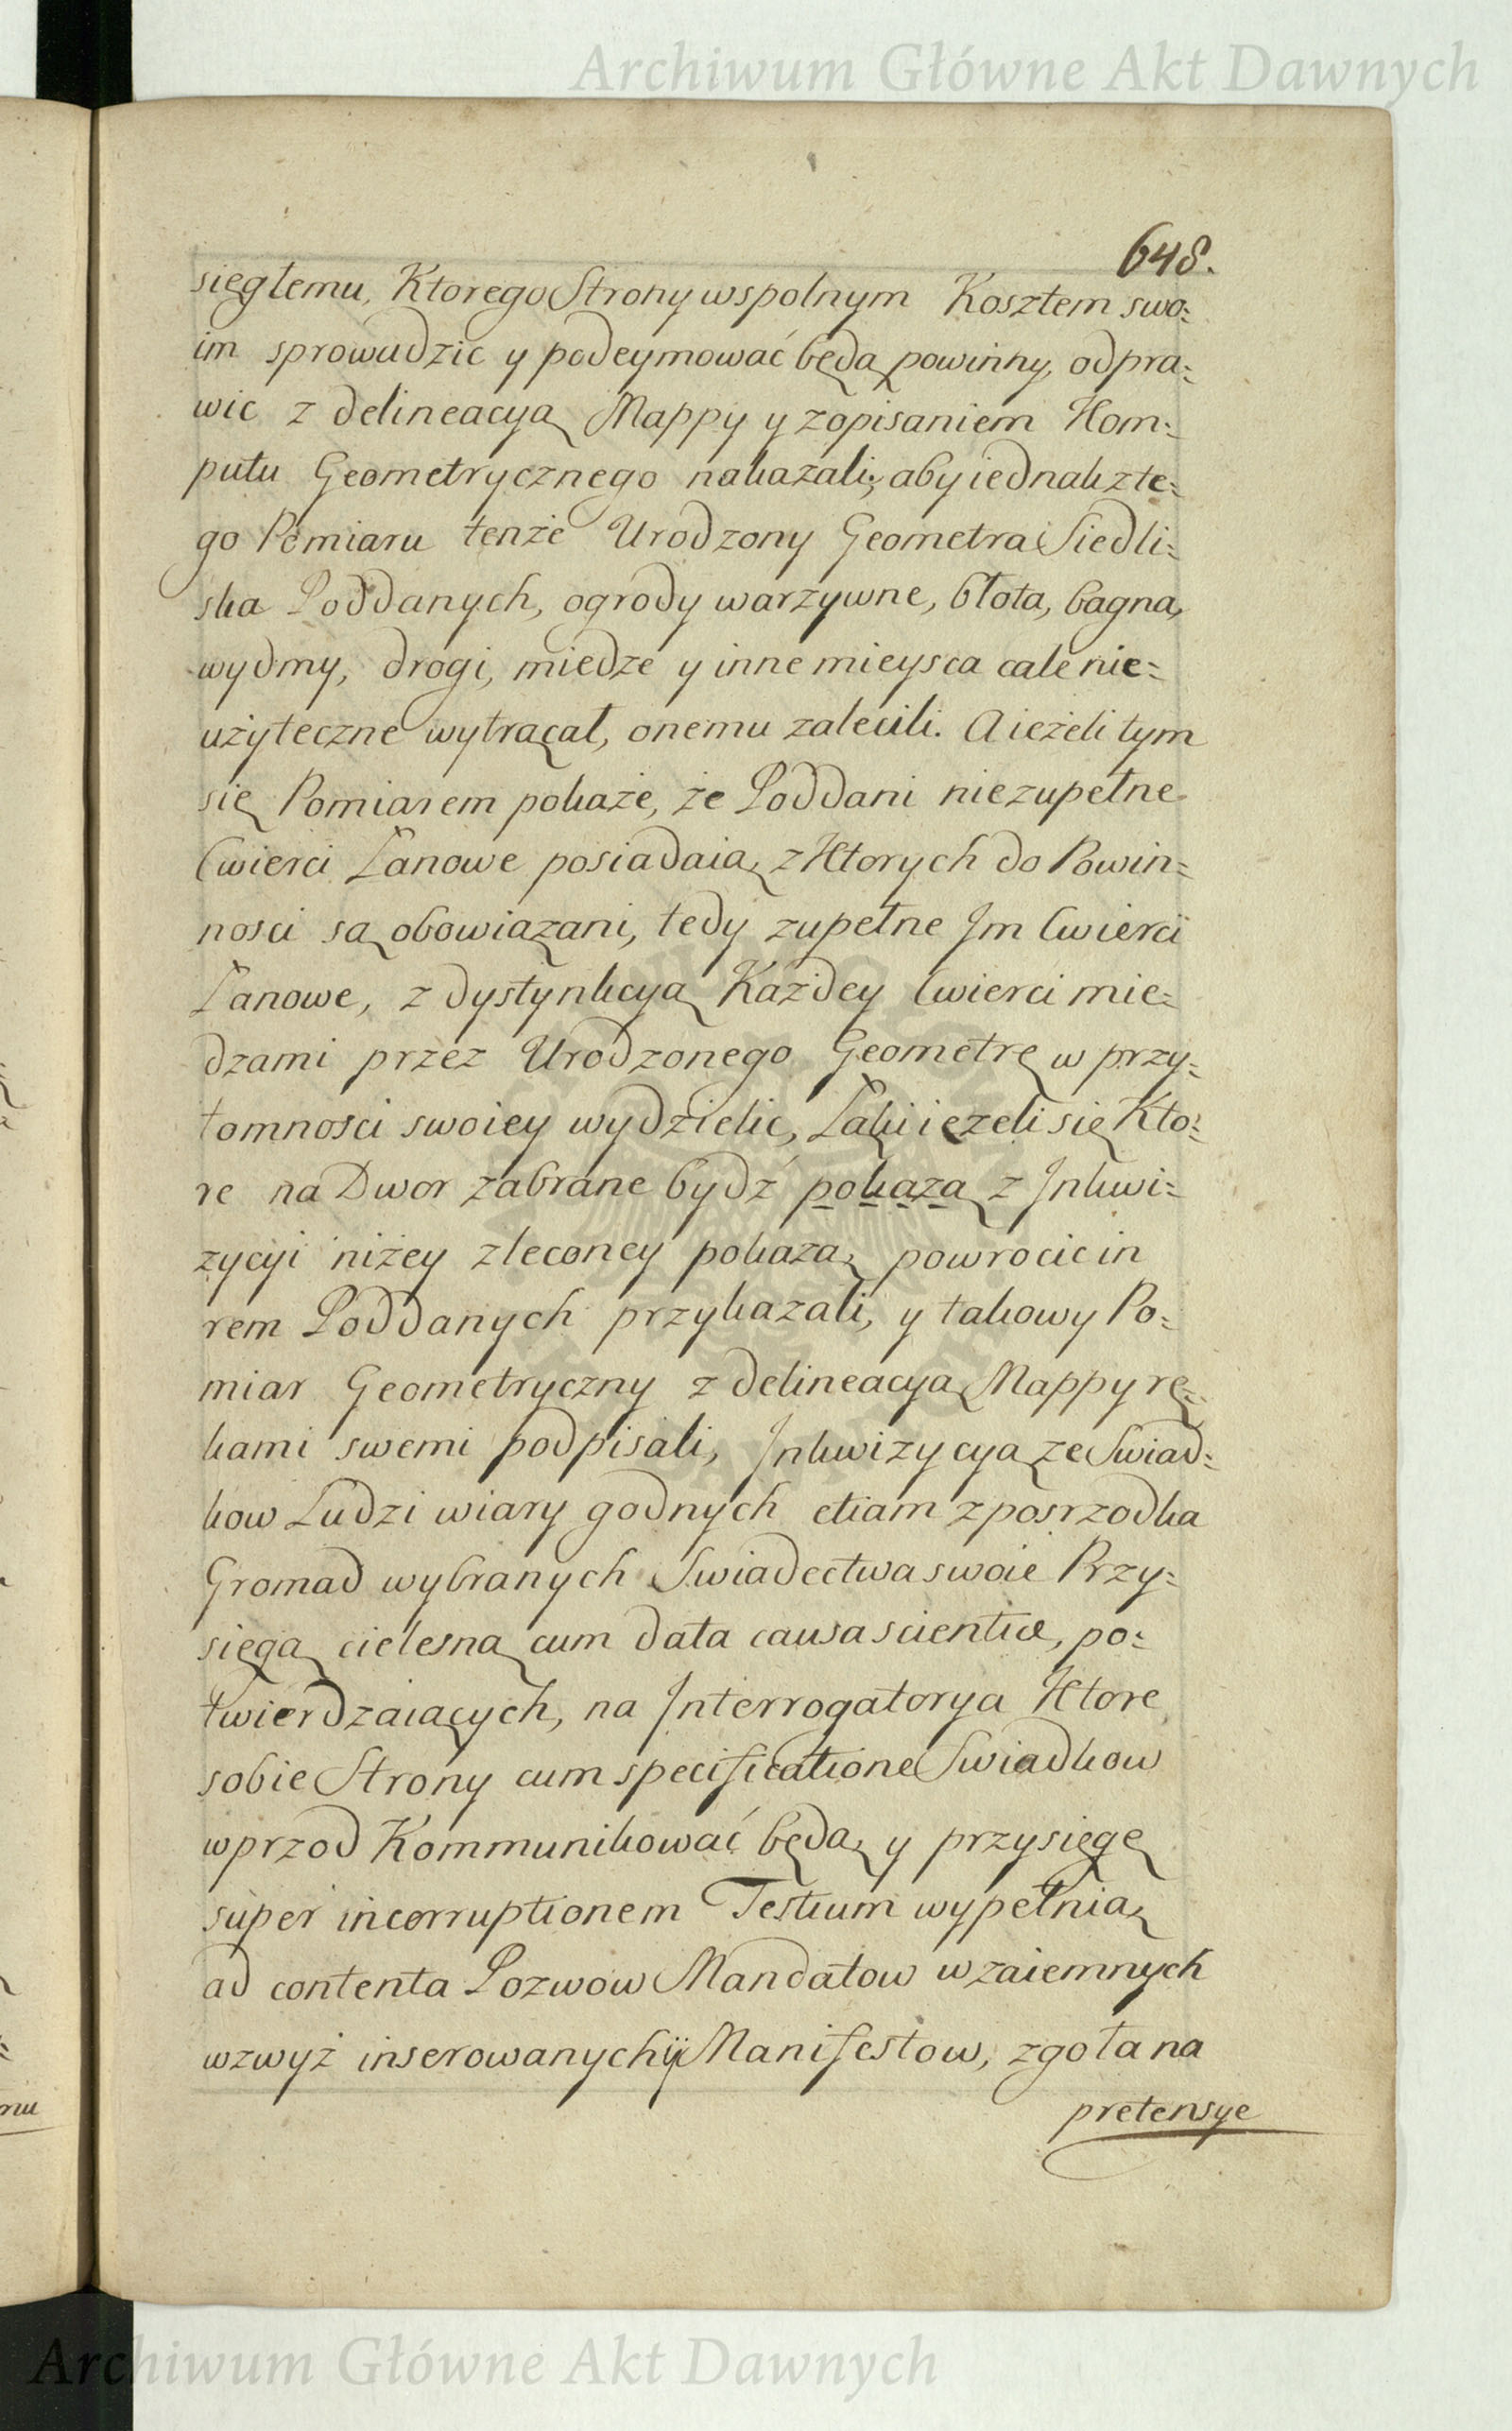 Archiwum Główne Akt Dawnych
648.
sięgłemu, Ktorego Strony wspolnym Kosztem swo:
im sprowadzic y podeymować będą powinny, odpra:
wic z delineacyą Mappy y z opisaniem Kom:
putu Geometrycznego nakazali; aby iednak z te:
go Pomiaru tenże Urodzony Geometra Siedli:
ska Poddanych, ogrody warzywne, błota, bagna,
wydmy, drogi, miedze y inne mieysca cale nie:
użyteczne wytrącał, onemu zalecili. A ieżeli tym
się Pomiarem pokaże, że Poddani niezupełne
Cwierci Łanowe posiadaią, z Ktorych do Powin:
nosci są obowiązani, tedy zupełne Jm Cwierci
Łanowe, z dystynkcyą Każdey Cwierci mie:
dzami przez Urodzonego Geometrę w przy:
tomnosci swoiey wydzielic, Łąki iezeli się Kto:
re na Dwor zabrane bydź pokażą z Jnkwi:
zycyi niżey zleconey pokażą, powrocic in
rem Poddanych przykazali, y takowy Po:
miar Geometryczny z delineacyą Mappy rę:
kami swemi podpisali, Jnkwizycyą ze Swiad:
kow Ludzi wiary godnych etiam z posrzodka
Gromad wybranych Swiadectwa swoie Przy:
sięgą cielesną cum data causa scientiæ, po:
twierdzaiących, na Jnterrogatorya Ktore
sobie Strony cum specificatione Swiadkow
wprzod Kommunikować będą, y przysięgę
super incorruptionem Testium wypełnią,
ad contenta Pozwow Mandatow wzaiemnych
wzwyż inserowanych ÿ Manifestow, zgoła na
pretensye
Archiwum Główne Akt Dawnych